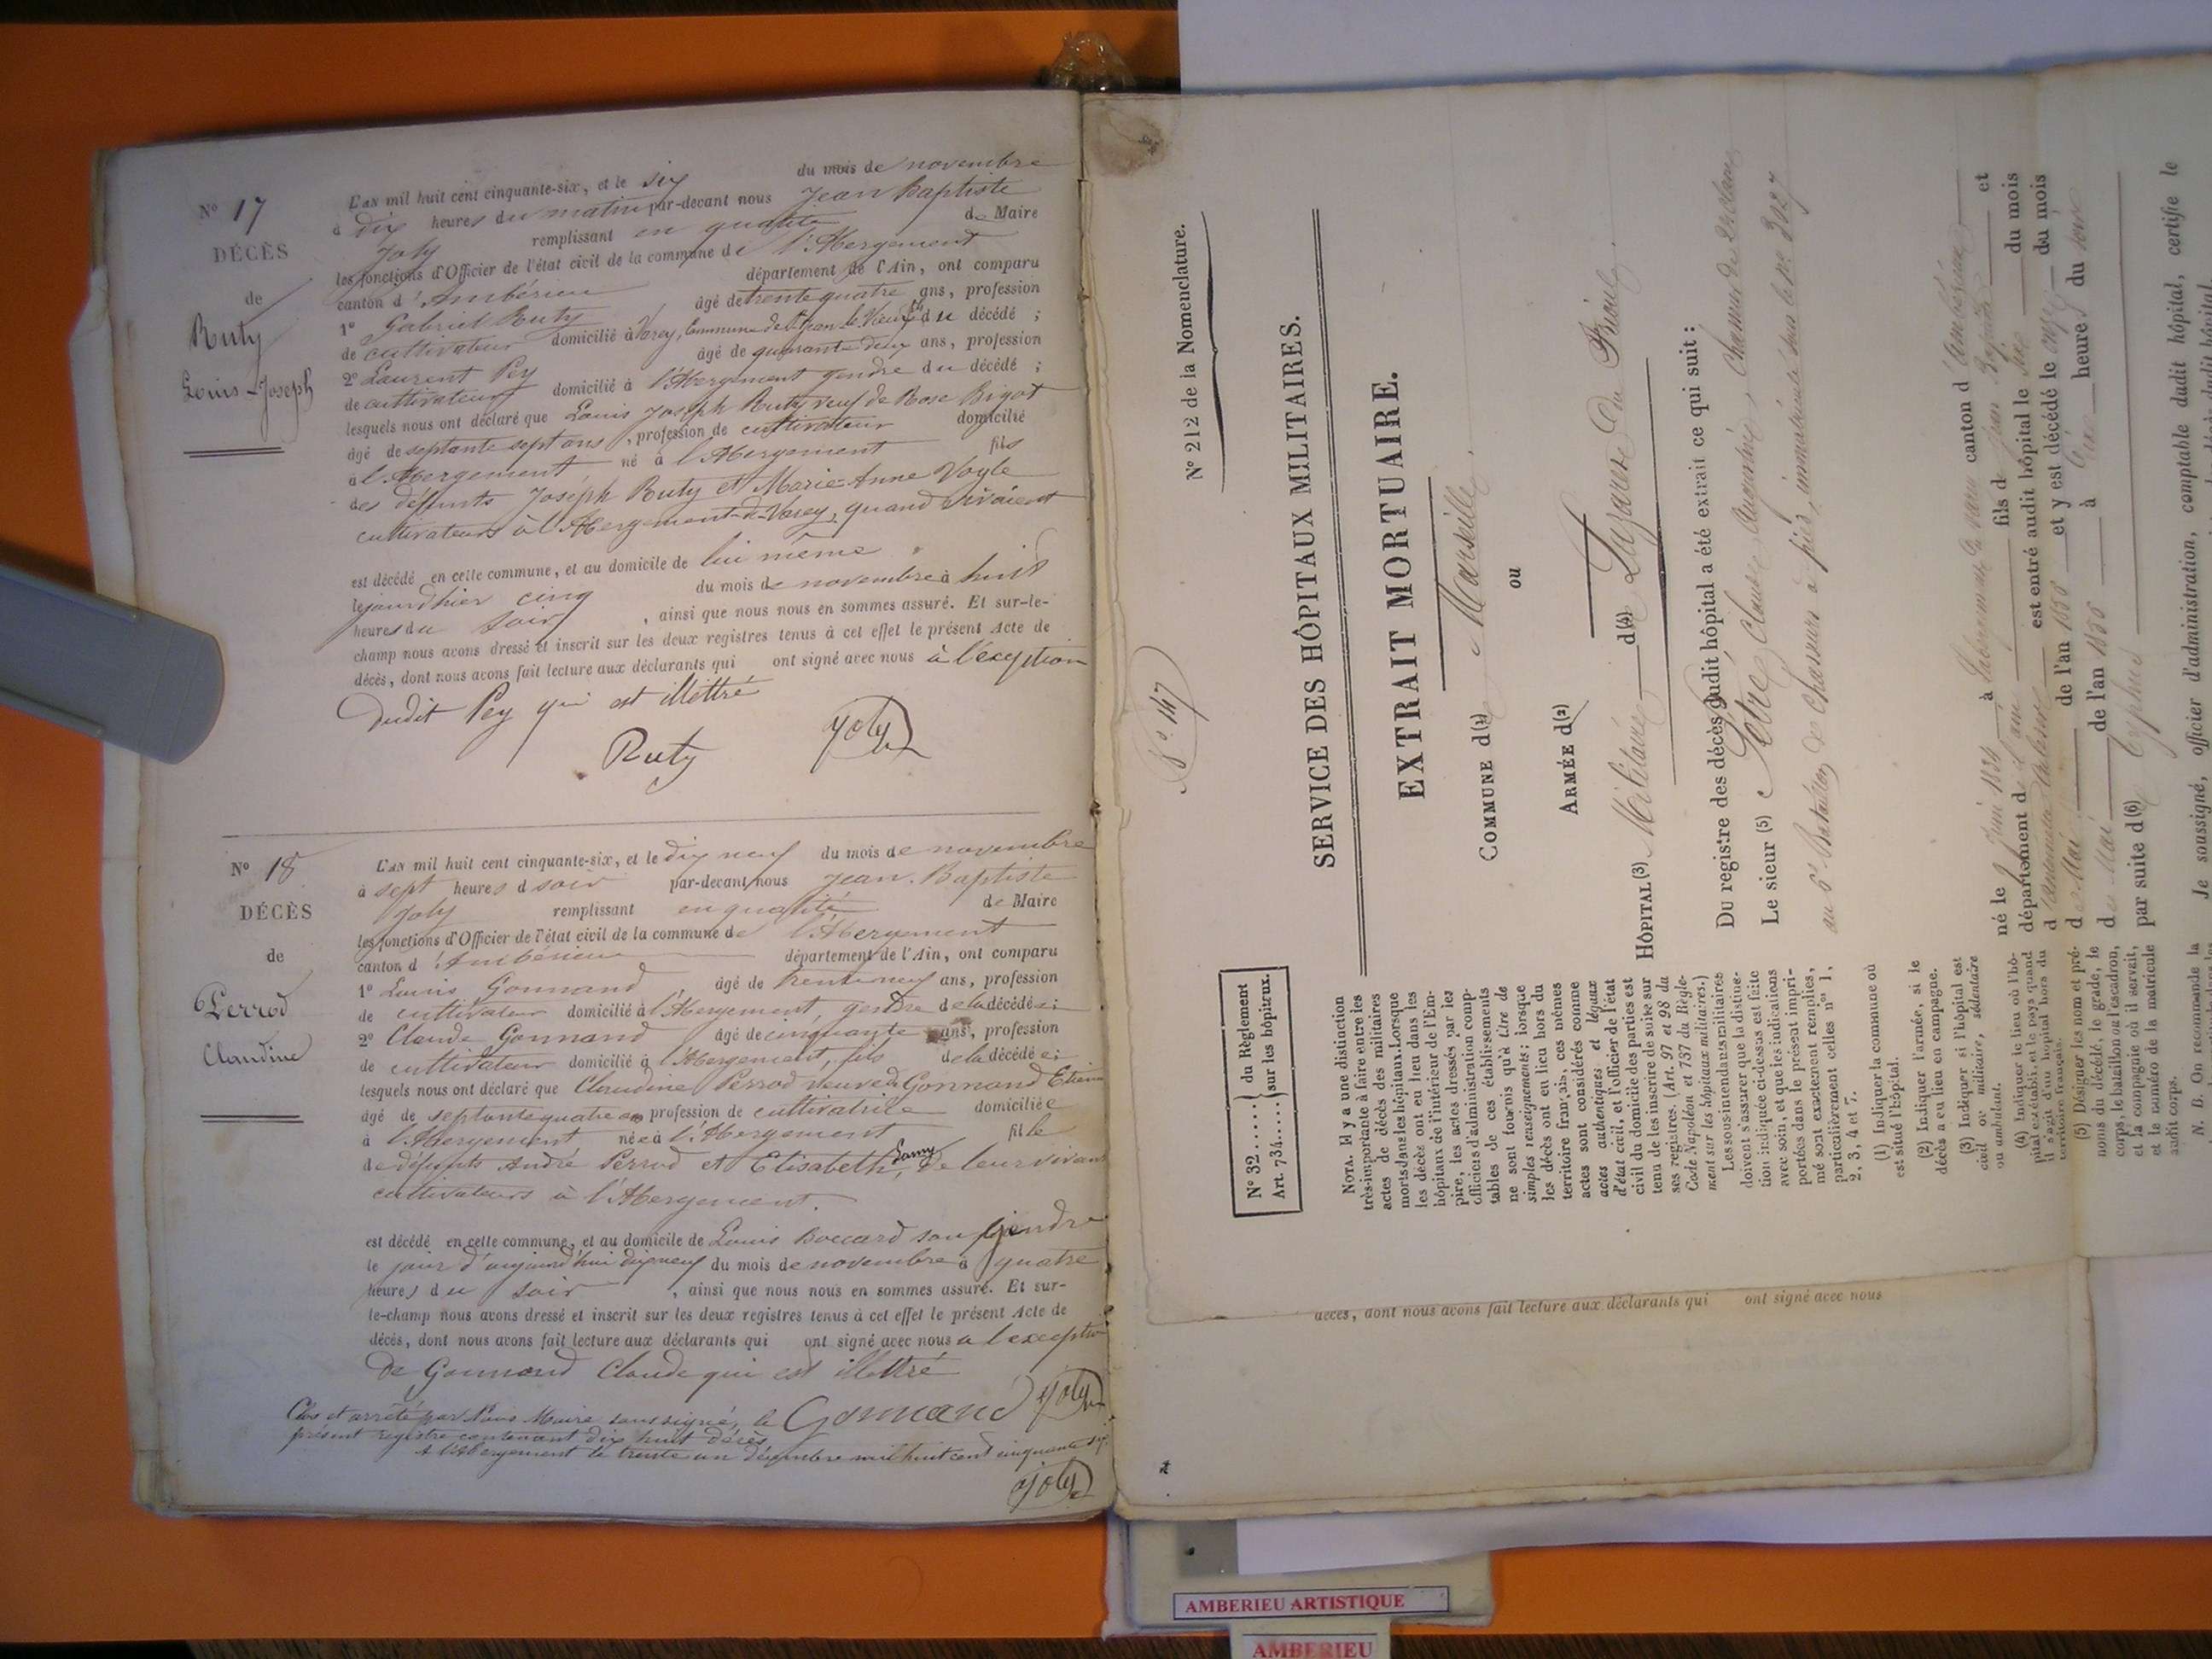 N° 17
DÉCÈS
de
Ruty
Louis-Joseph
L'AN mil huit cent cinquante-six, et le six du mois de novembre
à dix heures du matin par-devant nous Jean Baptiste
Joly remplissant en qualité de Maire
les fonctions d'Officier de l'état civil de la commune de l'Abergement
canton d'Ambérieu département de l'Ain, ont comparu
1° Gabriel Ruty âgé de trente quatre ans, profession
de cultivateur domicilié à Varey, Commune de St Jean-le-Vieux du décédé ;
2° Laurent Pey âgé de quarante deux ans, profession
de cultivateur domicilié à l'Abergement gendre du décédé ;
lesquels nous ont déclaré que Louis Joseph Ruty veuf de Rose Bigot
âgé de septante sept ans, profession de cultivateur domicilié
à l'Abergement né à l'Abergement fils
des défunts Joseph Ruty et Marie-Anne Vogle
cultivateurs à l'Abergement-de-Varey, quand vivaient
est décédé en cette commune, et au domicile de lui même
le jour d'hier cinq du mois de novembre à huit
heures du soir, ainsi que nous nous en sommes assuré. Et sur-le-
champ nous avons dressé et inscrit sur les deux registres tenus à cet effet le présent Acte de
décès, dont nous avons fait lecture aux déclarants qui ont signé avec nous à l'exception
dudit Pey qui est illettré
Ruty Joly
N° 18
DÉCÈS
de
Perrod
Claudine
L'AN mil huit cent cinquante-six, et le dix neuf du mois de novembre
à sept heures d soir par-devant nous Jean Baptiste
Joly remplissant en qualité de Maire
les fonctions d'Officier de l'état civil de la commune de l'Abergement
canton d'Ambérieu département de l'Ain, ont comparu
1° Louis Gonnand, âgé de trente neuf ans, profession
de cultivateur domicilié à l'Abergement, gendre de la décédée ;
2° Claude Gonnand âgé de cinquante ans, profession
de cultivateur domicilié à l'Abergement, fils de la décédée ;
lesquels nous ont déclaré que Claudine Perrod veuve de Gonnand Etienne
âgé de septante quatre ans profession de cultivatrice domiciliée
à l'Abergement née à l'Abergement fille
de défunts André Perrod et Elisabeth Lamy, de leur vivant
cultivateurs à l'Abergement.
est décédé en cette commune, et au domicile de Louis Boccard son gendre
le jour d'aujourd'hui dix neuf du mois de novembre à quatre
heures du soir, ainsi que nous nous en sommes assuré. Et sur-
le-champ nous avons dressé et inscrit sur les deux registres tenus à cet effet le présent Acte de
décès, dont nous avons fait lecture aux déclarants qui ont signé avec nous à l'exception
de Gonnand Claude qui est illettré
Gonnand Joly
Clos et arrêté par Nous Maire soussigné, le
présent registre contenant dix huit décès
A l'Abergement le trente un décembre mil huit cent cinquante six
Joly
N° 147
N° 212 de la Nomenclature.
N° 32..... du Règlement
Art. 734.... sur les hôpitaux.
SERVICE DES HÔPITAUX MILITAIRES.
EXTRAIT MORTUAIRE.
COMMUNE d(1) Marseille.
ou
ARMÉE d(2)
HÔPITAL (3) Militaire d(4) Lazaret du Frioul.
Du registre des décès dudit hôpital a été extrait ce qui suit :
Le sieur (5) Claude Augustin, Chasseur de 2e classe
au 6e Bataillon de Chasseurs à pied, immatriculé sous le no 3027
né le 9 Juin 1834 à Labergement de varey canton d'Ambérieux et
département d l'ain fils de Jean Baptiste
d est entré audit hôpital le six du mois
de Mai de l'an 1856 et y est décédé le onze du mois
de Mai de l'an 1856 à heures du soir
par suite d(6) Typhus
Je soussigné, officier d'administration, comptable dudit hôpital, certifie le
NOTA. Il y a une distinction
très-importante à faire entre les
actes de décès des militaires
morts dans les hôpitaux. Lorsque
les décès ont eu lieu dans les
hôpitaux de l'intérieur de l'Em-
pire, les actes dressés par les
officiers d'administration comp-
tables de ces établissements
ne sont fournis qu'à titre de
simples renseignements; lorsque
les décès ont eu lieu hors du
territoire français, ces mêmes
actes sont considérés comme
actes authentiques et légaux
d'état civil, et l'officier de l'état
civil du domicile des parties est
tenu de les inscrire de suite sur
ses registres. (Art. 97 et 98 du
Code Napoléon et 737 du Règle-
ment sur les hôpitaux militaires.)
Les sous-intendants militaires
doivent s'assurer que la distinc-
tion indiquée ci-dessus est faite
avec soin, et que les indications
portées dans le présent impri-
mé sont exactement remplies,
particulièrement celles nos 1,
2, 3, 4 et 7.
(1) Indiquer la commune où
est situé l'hôpital.
(2) Indiquer l'armée, si le
décès a eu lieu en campagne.
(3) Indiquer si l'hôpital est
civil ou militaire, sédentaire
ou ambulant.
(4) Indiquer le lieu où l'hô-
pital est établi, et le pays quand
il s'agit d'un hôpital hors du
territoire français.
(5) Désigner les nom et pré-
noms du décédé, le grade, le
corps, le bataillon ou l'escadron,
et la compagnie où il servait,
et le numéro de la matricule
audit corps.
N. B. On recommande la
décès, dont nous avons fait lecture aux déclarants qui ont signé avec nous
AMBERIEU ARTISTIQUE
AMBERIEU